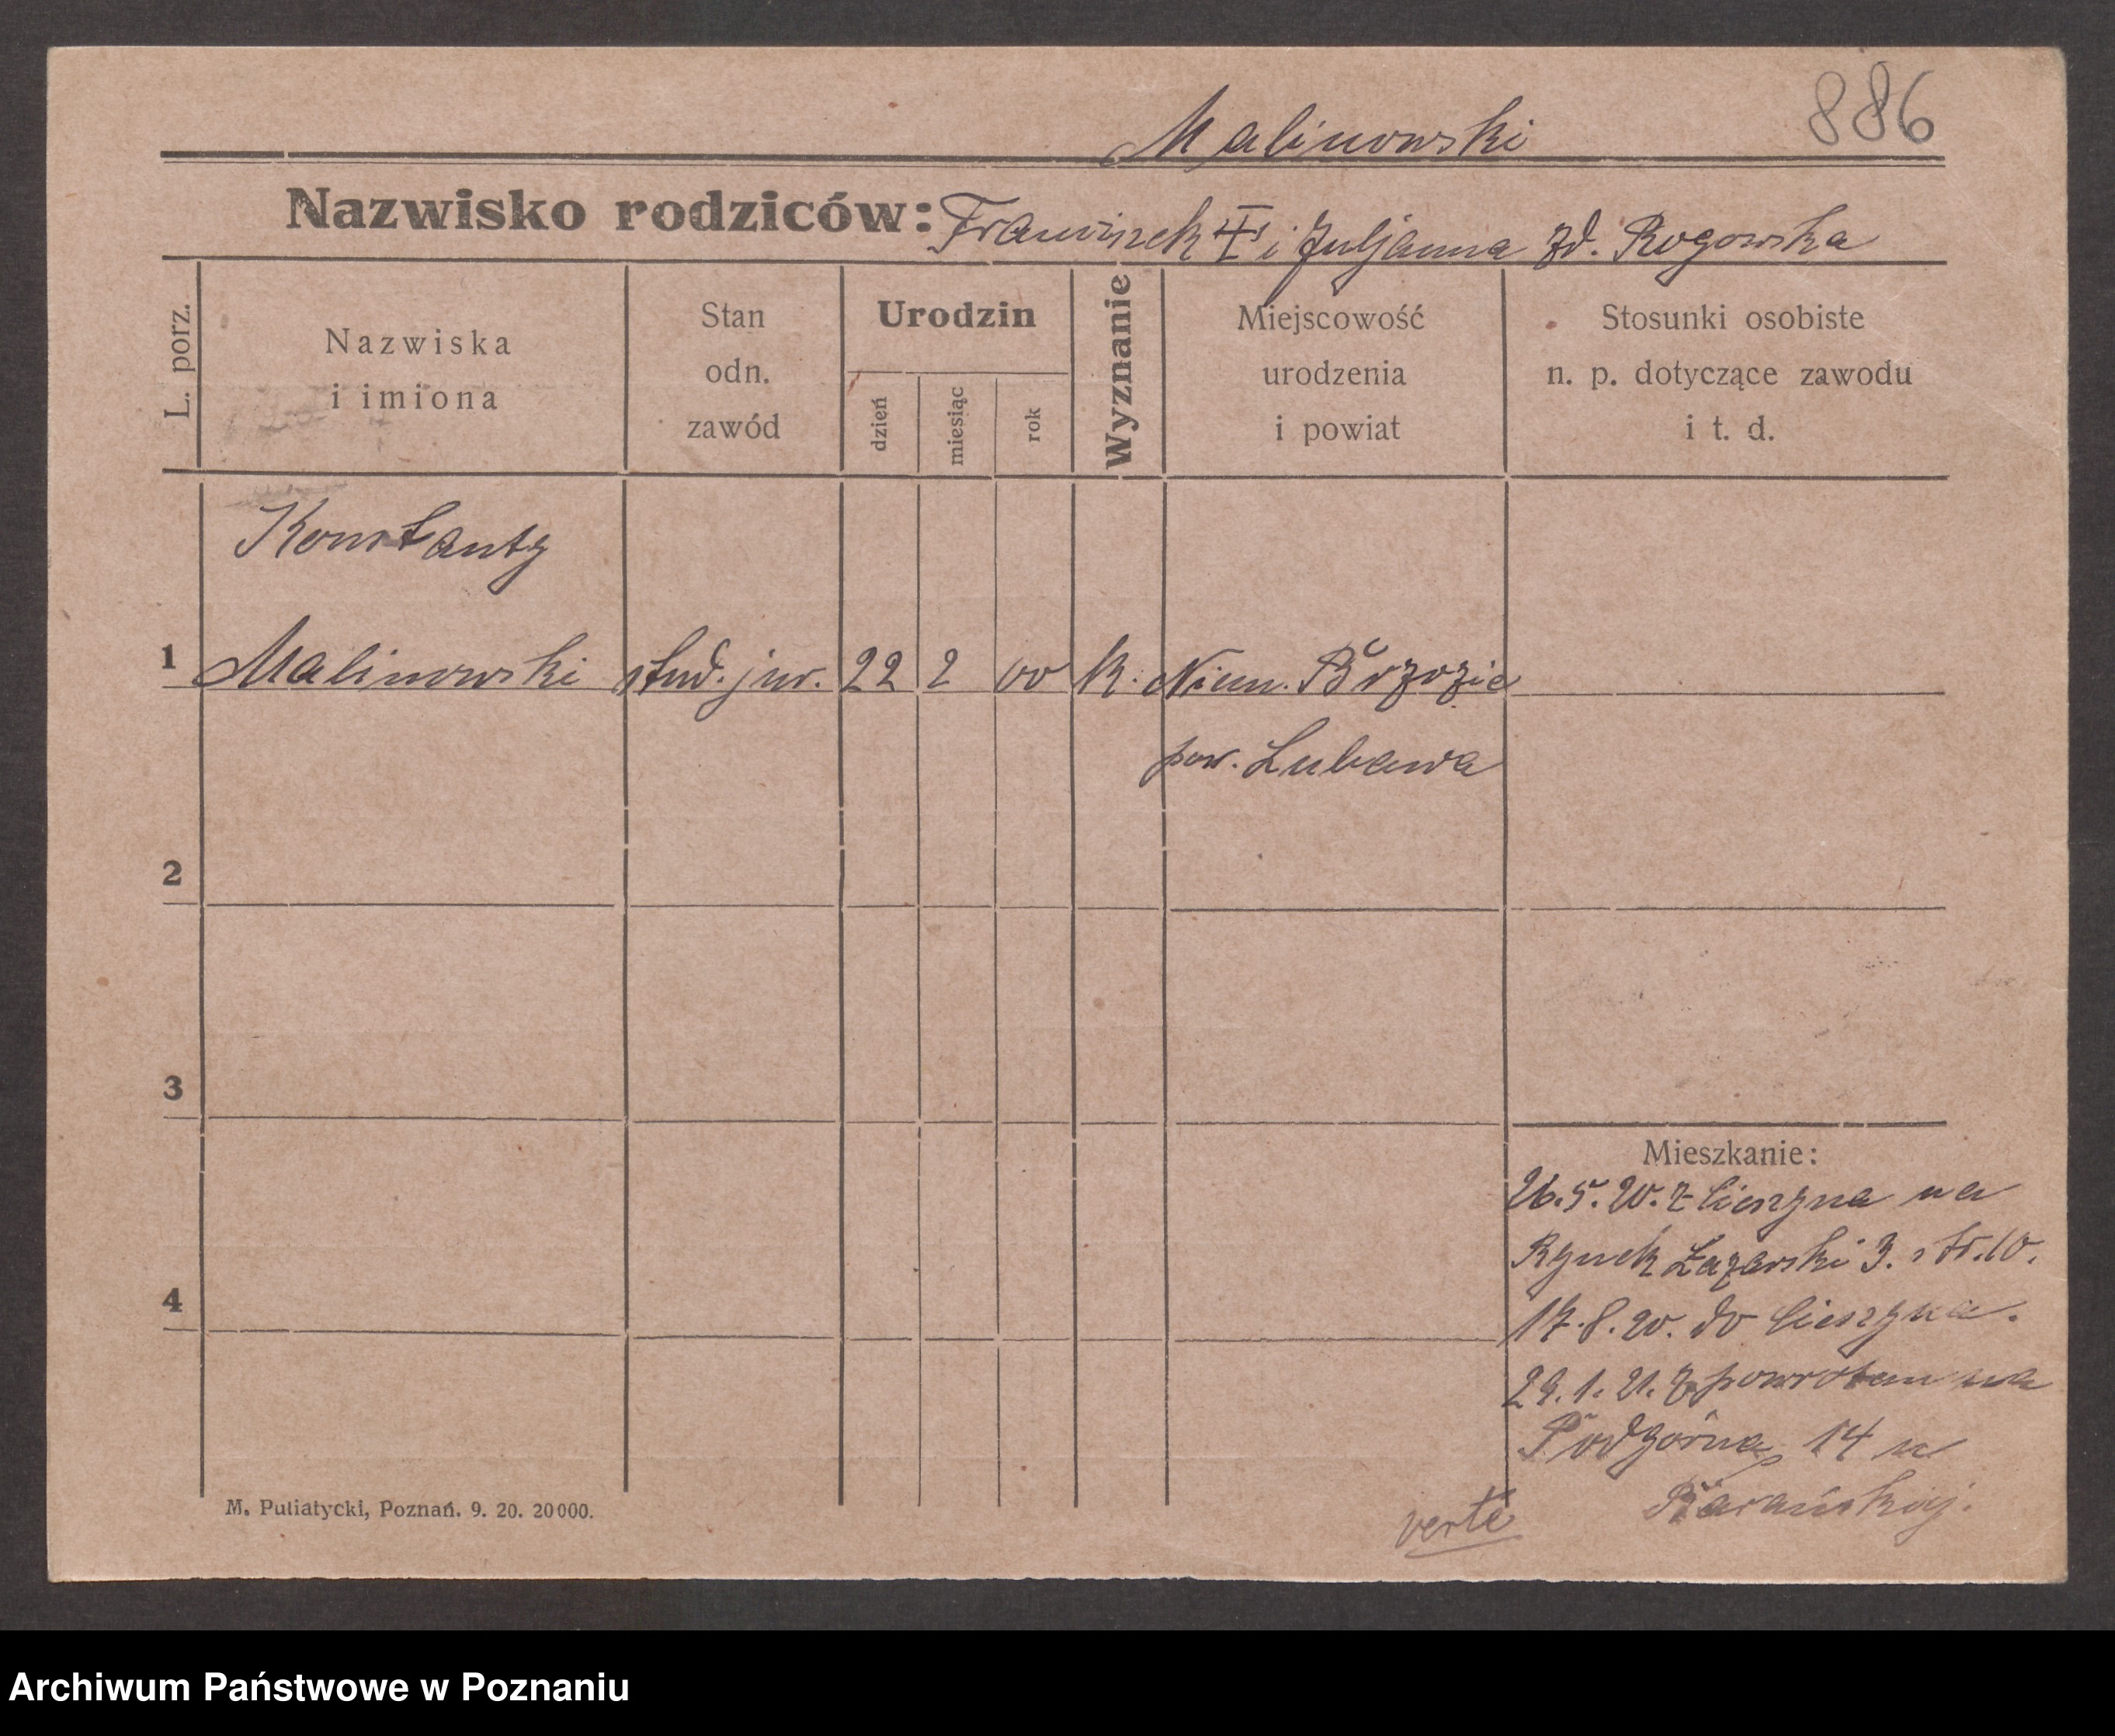 886
Malinowski
Nazwisko rodziców: Franciszek † i Juljanna zd. Rogowska
L. porz.
Nazwiska
i imiona
Stan
odn.
zawód
Urodzin
dzień
miesiąc
rok
Wyznanie
Miejscowość
urodzenia
i powiat
Stosunki osobiste
n. p. dotyczące zawodu
i t. d.
Konstanty
1 Malinowski stud. jur. 22 2 00 k. Niem. Brzozie
pow. Lubawa
2
3
4
Mieszkanie:
26.5.20. z Cieszyna na
Rynek Łazarski 3. str. 10.
17.8.20. do Cieszyna.
29.1.21. z powrotem na
Podgórną 14 u
Barańskiej.
verte
M. Putiatycki, Poznań. 9. 20. 20000.
Archiwum Państwowe w Poznaniu